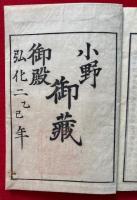 小野
御蔵
御殿
弘化二乙巳年